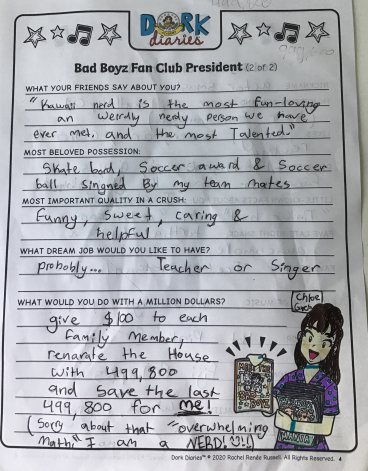 DORK
diaries
Bad Boyz Fan Club President (2 of 2)
WHAT YOUR FRIENDS SAY ABOUT YOU?
"Kawaii nerd is the most fun-loving
an weirdly nerdy person we have
ever met, and the most Talented."
MOST BELOVED POSSESSION:
Skate bord, Soccer award & Soccer
ball singned By my team mates
MOST IMPORTANT QUALITY IN A CRUSH:
Funny, Sweet, caring &
helpful
WHAT DREAM JOB WOULD YOU LIKE TO HAVE?
probobly... Teacher or Singer
WHAT WOULD YOU DO WITH A MILLION DOLLARS?
Chloe
give $100 to each
Family Member,
renarate the House
with 499,800
and save the last
499,800 for me!
(Sorry about that "overwhelming
Math," I am a NERD!
Dork Diaries™ © 2020 Rachel Renée Russell. All Rights Reserved. 4